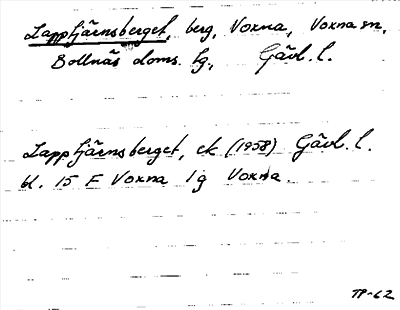 Lapptjärnsberget, berg, Voxna, Voxna sn,
Bollnäs doms. tg., Gävl. l.
Lapptjärnsberget, ek (1958) Gävl. l.
bl. 15 F Voxna 1g Voxna.
TP-62